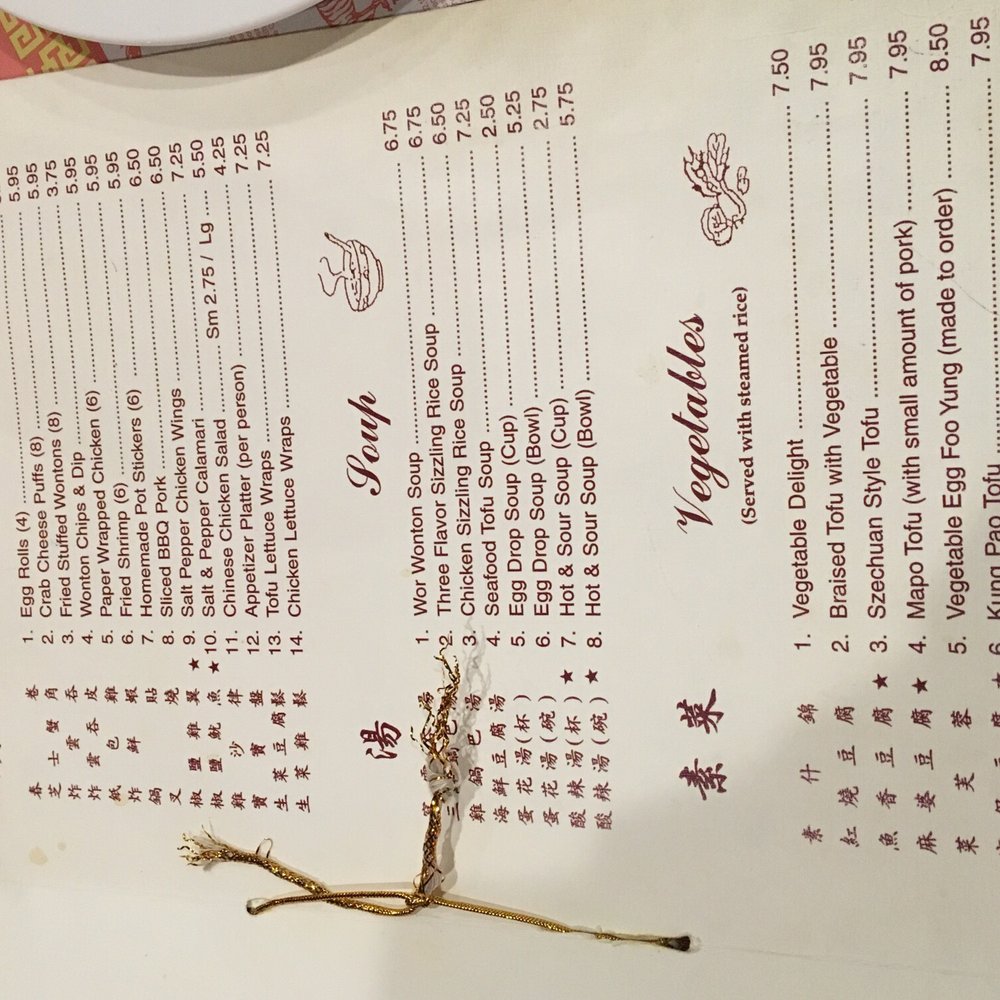 春卷 1. Egg Rolls (4)
芝士蟹角 2. Crab Cheese Puffs (8) 5.95
炸雲吞 3. Fried Stuffed Wontons (8) 5.95
炸雲吞皮 4. Wonton Chips & Dip 3.75
紙包雞 5. Paper Wrapped Chicken (6) 5.95
炸鮮蝦 6. Fried Shrimp (6) 5.95
鍋貼 7. Homemade Pot Stickers (6) 5.95
叉燒 8. Sliced BBQ Pork 6.50
椒鹽雞翼 ★ 9. Salt Pepper Chicken Wings 6.50
椒鹽魷魚 ★ 10. Salt & Pepper Calamari 7.25
雞沙律 11. Chinese Chicken Salad Sm 2.75 / Lg 5.50
寶寶盤 12. Appetizer Platter (per person) 4.25
生菜豆腐鬆 13. Tofu Lettuce Wraps 7.25
生菜雞鬆 14. Chicken Lettuce Wraps 7.25
湯 Soup
湯 1. Wor Wonton Soup 6.75
三 2. Three Flavor Sizzling Rice Soup 6.75
雞鍋巴湯 3. Chicken Sizzling Rice Soup 6.50
海鮮豆腐湯 4. Seafood Tofu Soup 7.25
蛋花湯(杯) 5. Egg Drop Soup (Cup) 2.50
蛋花湯(碗) 6. Egg Drop Soup (Bowl) 5.25
酸辣湯(杯) ★ 7. Hot & Sour Soup (Cup) 2.75
酸辣湯(碗) ★ 8. Hot & Sour Soup (Bowl) 5.75
素菜 Vegetables
(Served with steamed rice)
素什錦 1. Vegetable Delight 7.50
紅燒豆腐 2. Braised Tofu with Vegetable 7.95
魚香豆腐 ★ 3. Szechuan Style Tofu 7.95
麻婆豆腐 ★ 4. Mapo Tofu (with small amount of pork) 7.95
菜芙蓉 5. Vegetable Egg Foo Yung (made to order) 8.50
★ 6. Kung Pao Tofu 7.95